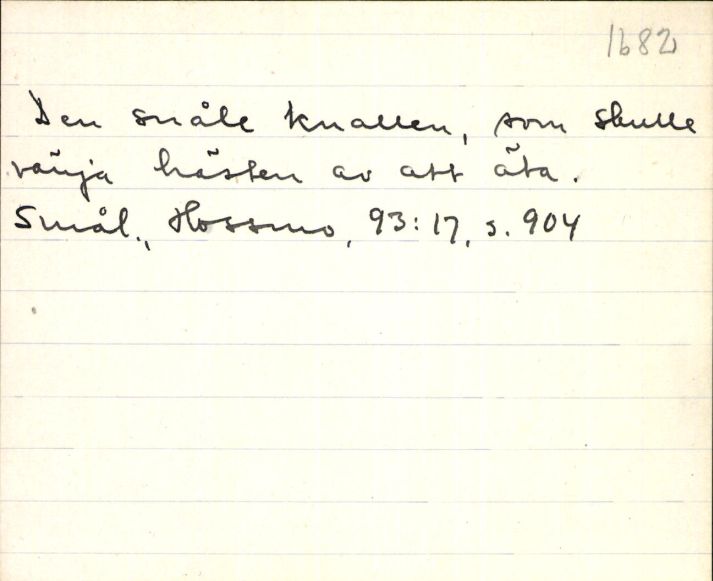 1682
Den snåle knallen, som skulle
vänja hästen av att äta.
Smål., Hossmo, 93:17, s. 904